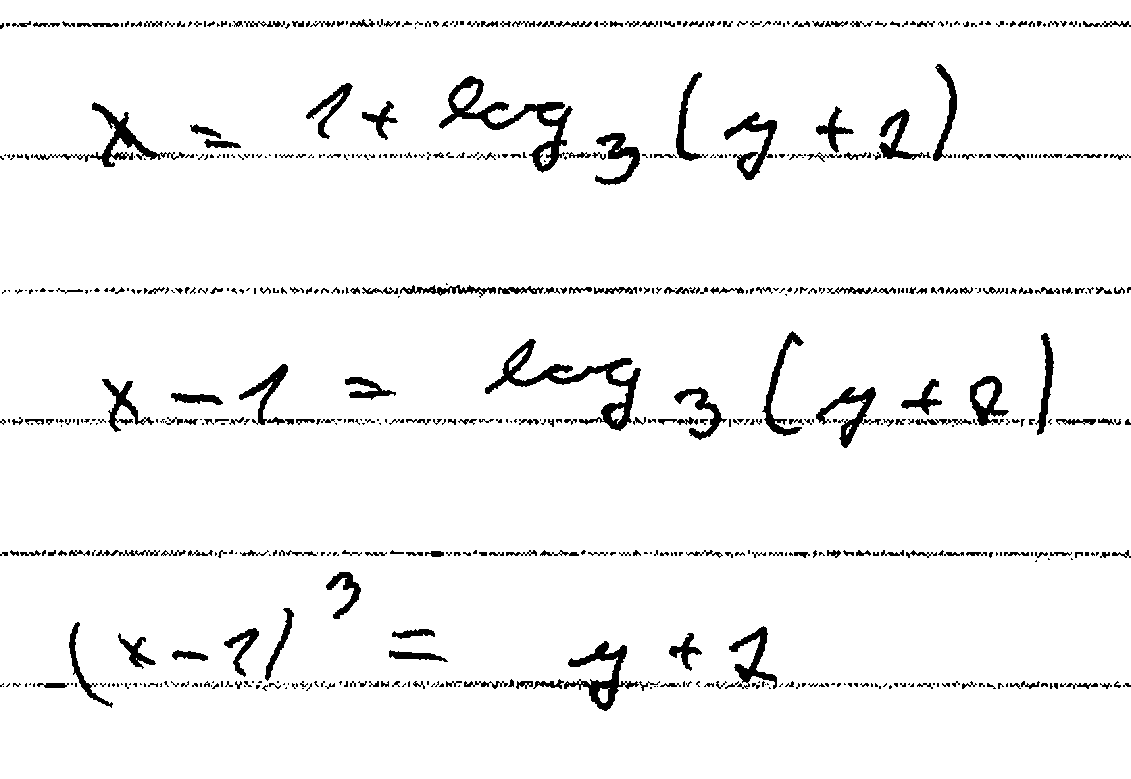 x = 1 + log₃ (y + 2)
x - 1 = log₃ (y + 2)
(x - 1)³ = y + 2